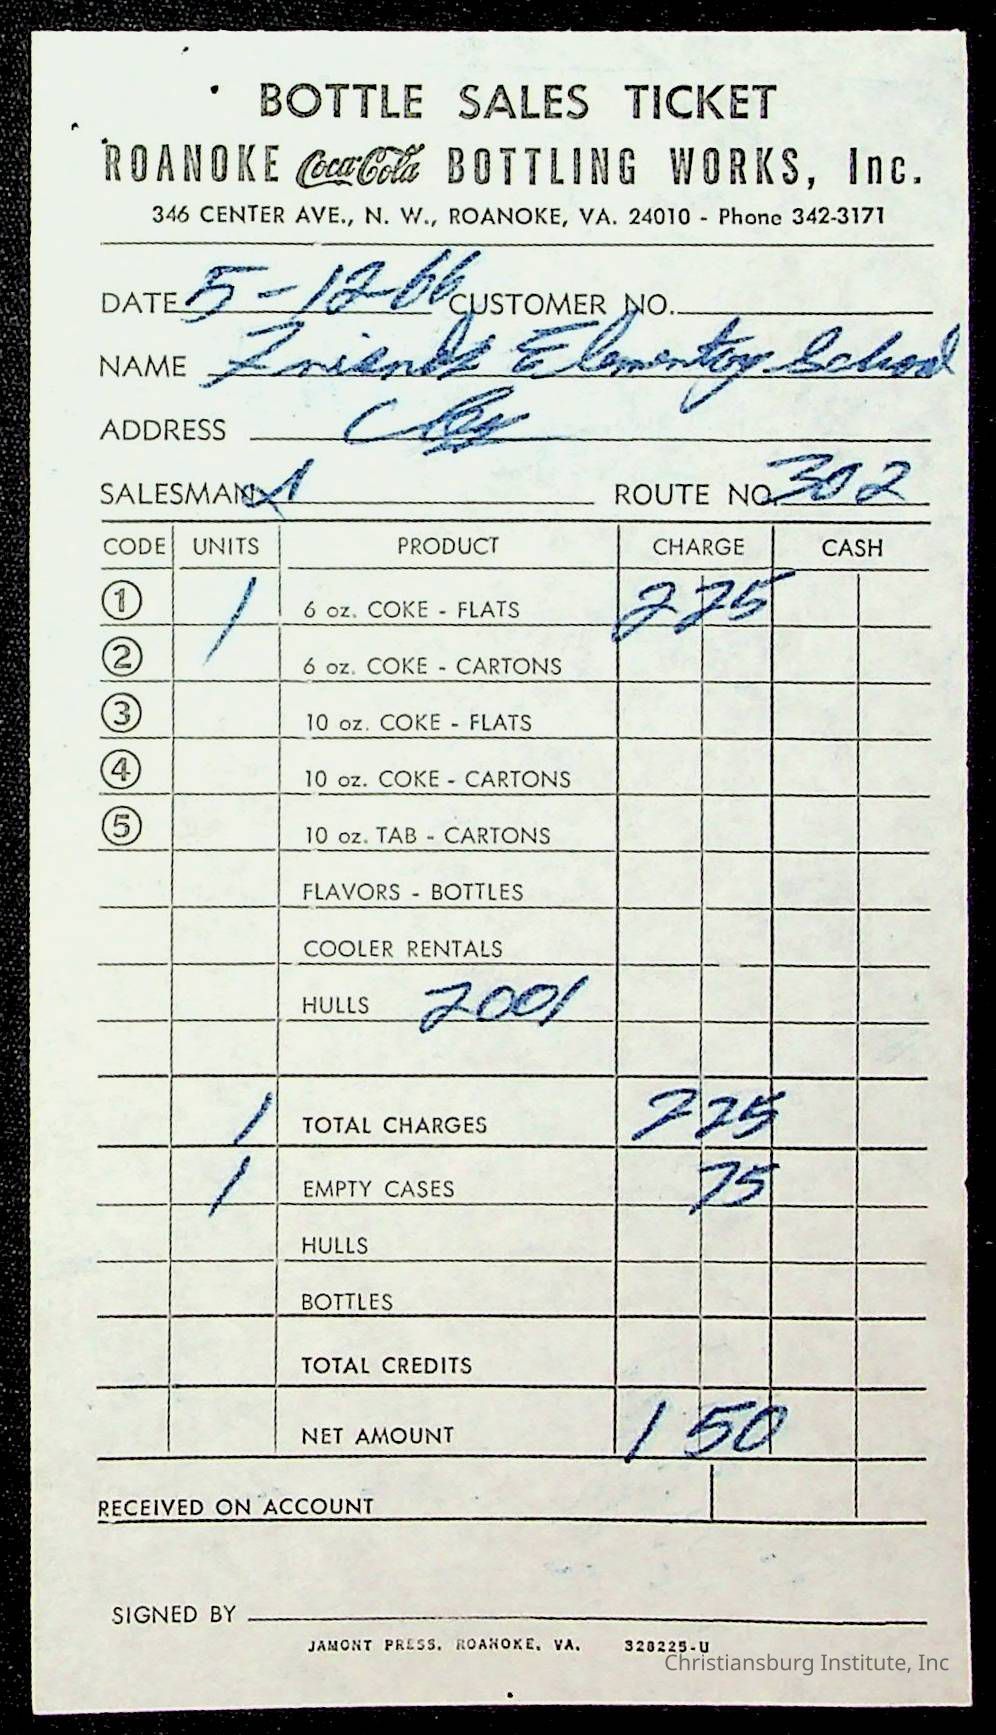 BOTTLE SALES TICKET
ROANOKE Coca-Cola BOTTLING WORKS, Inc.
346 CENTER AVE., N. W., ROANOKE, VA. 24010 - Phone 342-3171
DATE 5-12-66 CUSTOMER NO.
NAME Friends Elementary School
ADDRESS City
SALESMAN ROUTE NO. 302
CODE UNITS PRODUCT CHARGE CASH
1 1 6 oz. COKE - FLATS 2 25
2 6 oz. COKE - CARTONS
3 10 oz. COKE - FLATS
4 10 oz. COKE - CARTONS
5 10 oz. TAB - CARTONS
FLAVORS - BOTTLES
COOLER RENTALS
HULLS 2001
1 TOTAL CHARGES 2 25
1 EMPTY CASES 75
HULLS
BOTTLES
TOTAL CREDITS
NET AMOUNT 1 50
RECEIVED ON ACCOUNT
SIGNED BY
JAMONT PRESS, ROANOKE, VA. 328225-U
Christiansburg Institute, Inc